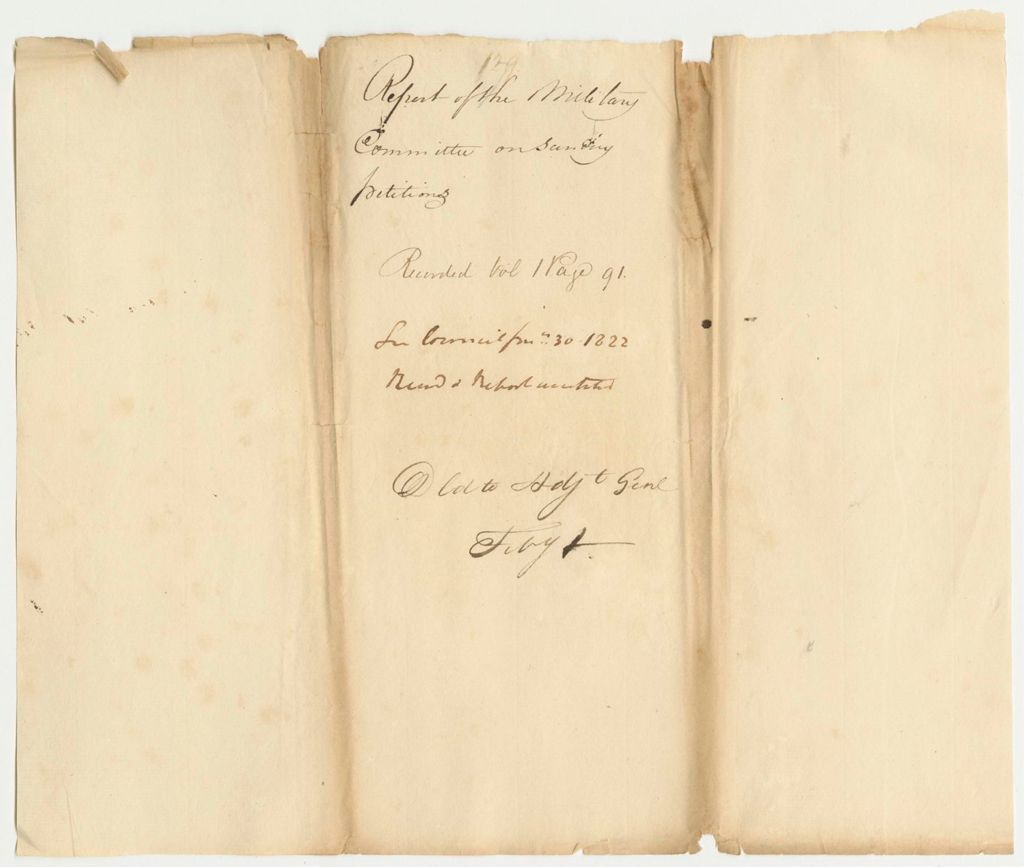 129
Report of the Military
Committee on Sundry
petitions
Recorded Vol 1 Page 91.
In Council Jany 30 1822
Read & Report accepted
Dld to Adjt Genl
Feby 1